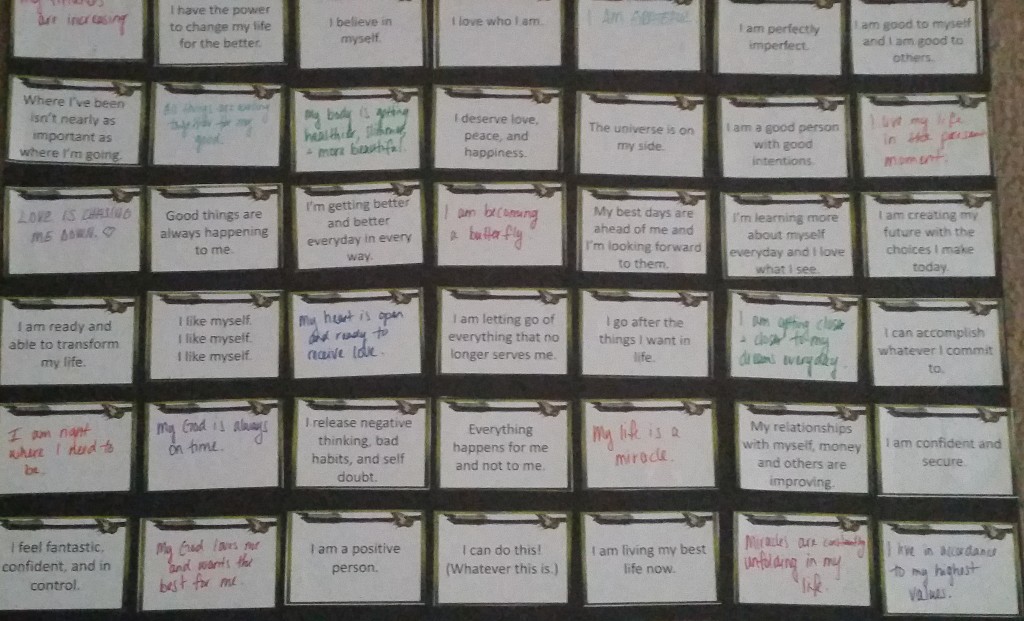 are increasing
I have the power
to change my life
for the better.
I believe in
myself.
I love who I am.
I AM
I am perfectly
imperfect.
I am good to myself
and I am good to
others.
Where I've been
isn't nearly as
important as
where I'm going.
All things are
together for my
good.
My body is getting
healthier, slimmer,
+ more beautiful.
I deserve love,
peace, and
happiness.
The universe is on
my side.
I am a good person
with good
intentions.
I love my life
in the present
moment.
LOVE IS CHASING
ME DOWN. ♡
Good things are
always happening
to me.
I'm getting better
and better
everyday in every
way.
I am becoming
a butterfly
My best days are
ahead of me and
I'm looking forward
to them.
I'm learning more
about myself
everyday and I love
what I see.
I am creating my
future with the
choices I make
today.
I am ready and
able to transform
my life.
I like myself.
I like myself.
I like myself.
My heart is open
and ready to
receive love.
I am letting go of
everything that no
longer serves me.
I go after the
things I want in
life.
I am getting closer
+ closer to my
dreams everyday.
I can accomplish
whatever I commit
to.
I am right
where I need to
be.
My God is always
on time.
I release negative
thinking, bad
habits, and self
doubt.
Everything
happens for me
and not to me.
My life is a
miracle.
My relationships
with myself, money
and others are
improving.
I am confident and
secure.
I feel fantastic,
confident, and in
control.
My God loves me
and wants the
best for me.
I am a positive
person.
I can do this!
(Whatever this is.)
I am living my best
life now.
Miracles are constantly
unfolding in my
life.
I live in accordance
to my highest
values.